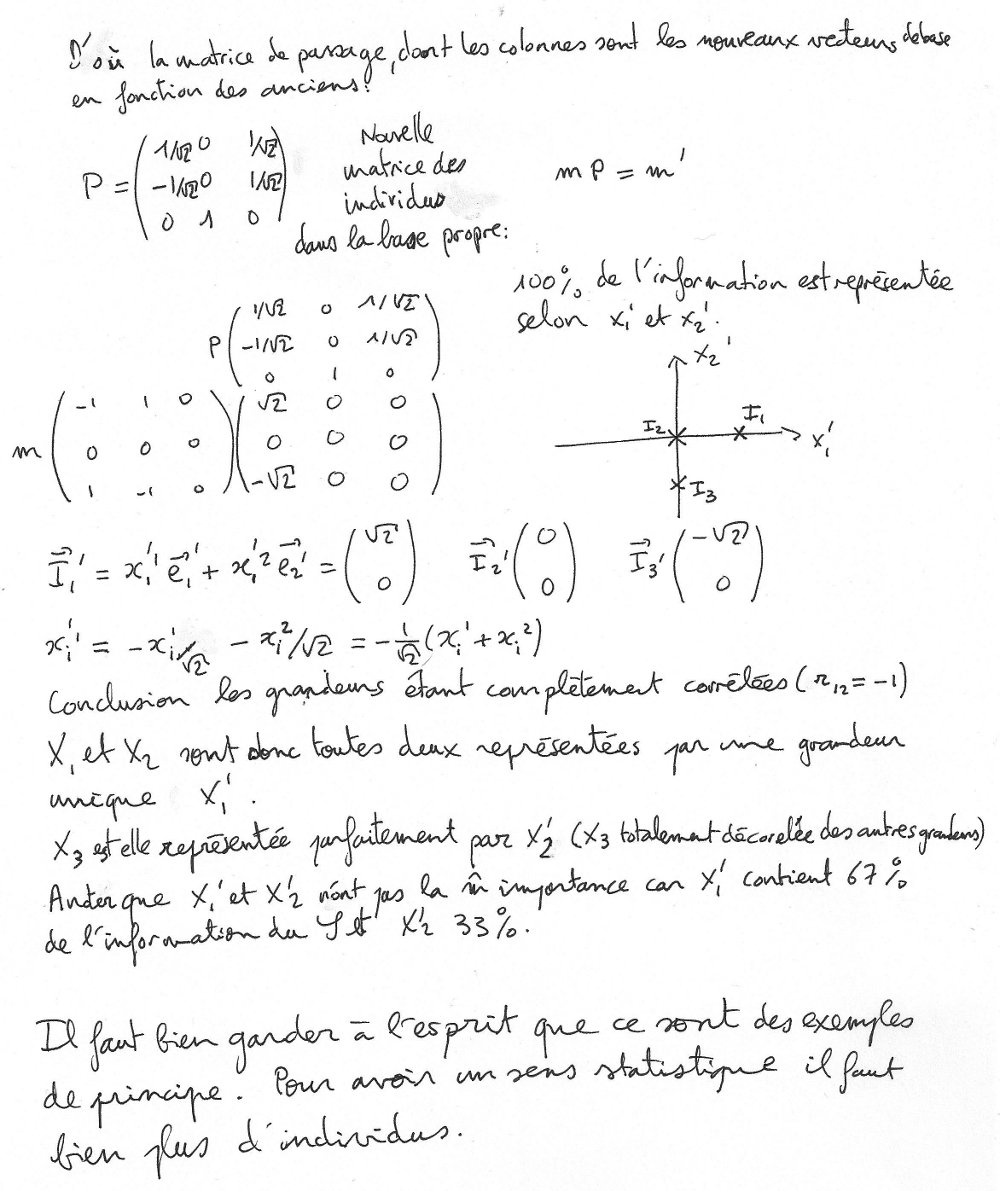 D'où la matrice de passage, dont les colonnes sont les nouveaux vecteurs de base
en fonction des anciens:
P = ( 1/√2 0 1/√2
-1/√2 0 1/√2
0 1 0 )
Nouvelle
matrice des
individus
dans la base propre:
m P = m'
100% de l'information est représentée
selon x₁' et x₂'.
P ( 1/√2 0 1/√2
-1/√2 0 1/√2
0 1 0 )
m ( -1 1 0
0 0 0
1 -1 0 )
( √2 0 0
0 0 0
-√2 0 0 )
X₂'
I₂ I₁ X₁'
I₃
I₁' = x₁'¹ e₁' + x₁'² e₂' = ( √2 0 ) I₂' ( 0 0 ) I₃' ( -√2 0 )
xᵢ'¹ = -xᵢ¹/√2 - xᵢ²/√2 = -1/√2 (xᵢ¹ + xᵢ²)
Conclusion les grandeurs étant complètement corrélées (r₁₂ = -1)
X₁ et X₂ sont donc toutes deux représentées par une grandeur
unique X₁'.
X₃ est elle représentée parfaitement par X₂' (X₃ totalement décorelée des autres grandeurs)
que X₁' et X₂' n'ont pas la m̂ importance car X₁' contient 67%
de l'information du et X₂' 33%.
Il faut bien garder à l'esprit que ce sont des exemples
de principe. Pour avoir un sens statistique il faut
bien plus d'individus.